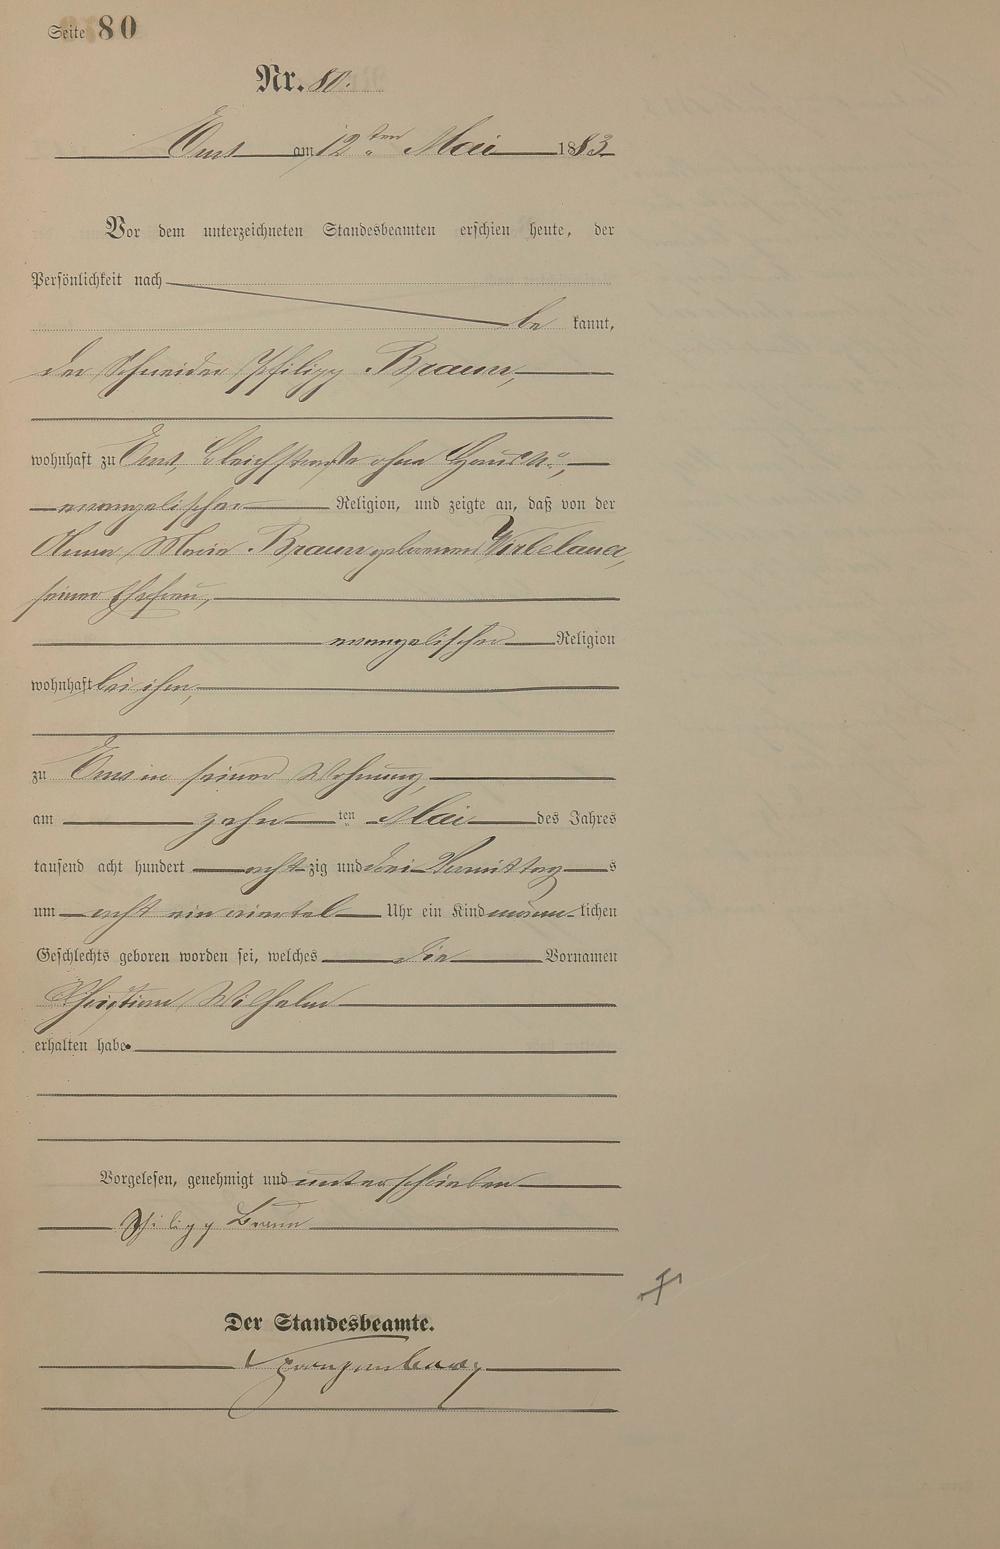 Seite 80
Nr. 80.
Ems am 12ten Mai 1883
Vor dem unterzeichneten Standesbeamten erschien heute, der
Persönlichkeit nach
be kannt,
der Schneider Philipp Braun,
wohnhaft zu Ems, Bleichstraße ohne Haus No,
evangelischer Religion, und zeigte an, daß von der
Anna Maria Braun geborenen Wirbelauer,
seiner Ehefrau,
evangelischer Religion
wohnhaft bei ihm,
zu Ems in seiner Wohnung,
am zehn ten Mai des Jahres
tausend acht hundert acht zig und drei Vormittag s
um acht ein viertel Uhr ein Kind männ lichen
Geschlechts geboren worden sei, welches die Vornamen
Christian Wilhelm
erhalten habe.
Vorgelesen, genehmigt und unterschrieben
Philipp Braun
Der Standesbeamte.